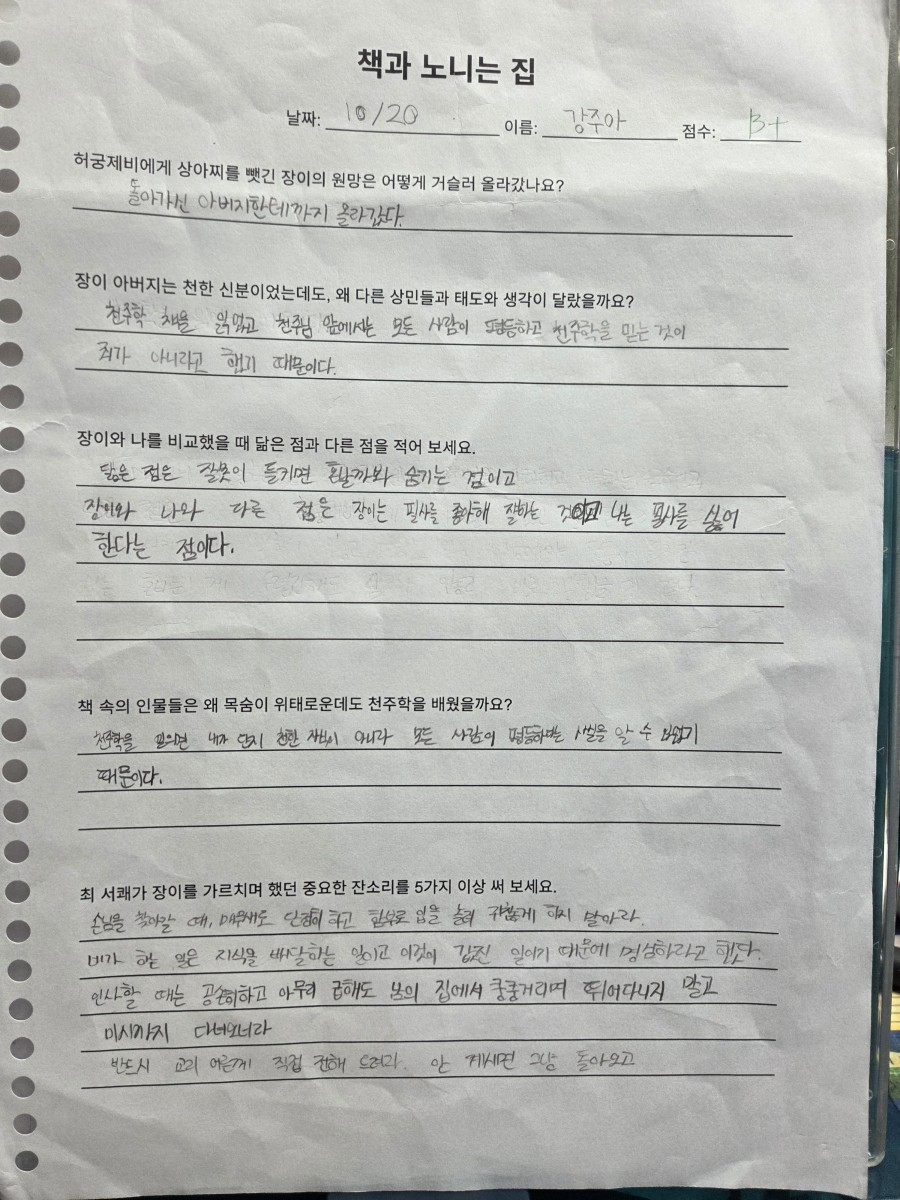 책과 노니는 집
날짜: 10/20 이름: 강주아 점수: B+
허궁제비에게 상아찌를 뺏긴 장이의 원망은 어떻게 거슬러 올라갔나요?
돌아가신 아버지한테까지 올라갔다.
장이 아버지는 천한 신분이었는데도, 왜 다른 상민들과 태도와 생각이 달랐을까요?
천주학 책을 읽었고 천주님 앞에서는 모든 사람이 평등하고 천주학을 믿는 것이
죄가 아니라고 했기 때문이다.
장이와 나를 비교했을 때 닮은 점과 다른 점을 적어 보세요.
닮은 점은 잘못이 들키면 혼날까봐 숨기는 점이고
장이와 나와 다른 점은 장이는 필사를 좋아해 잘하는 나는 필사를 싫어
한다는 점이다.
책 속의 인물들은 왜 목숨이 위태로운데도 천주학을 배웠을까요?
천주학을 내가 단지 천한 아니라 모든 사람이 평등하다는 사실을 알 수 있기
때문이다.
최 서쾌가 장이를 가르치며 했던 중요한 잔소리를 5가지 이상 써 보세요.
손님을 찾아갈 때, 매무새도 단정히 하고 함부로 입을 놀려 하지 말아라.
네가 하는 일은 지식을 배달하는 일이고 이것이 값진 일이기 때문에 명심하라고 했다.
인사할 때는 공손히하고 아무리 급해도 남의 집에서 쿵쿵거리며 뛰어다니지 말고
미시까지 다녀오너라
반드시 교리 어른께 직접 전해 드려라. 안 계시면 그냥 돌아오고